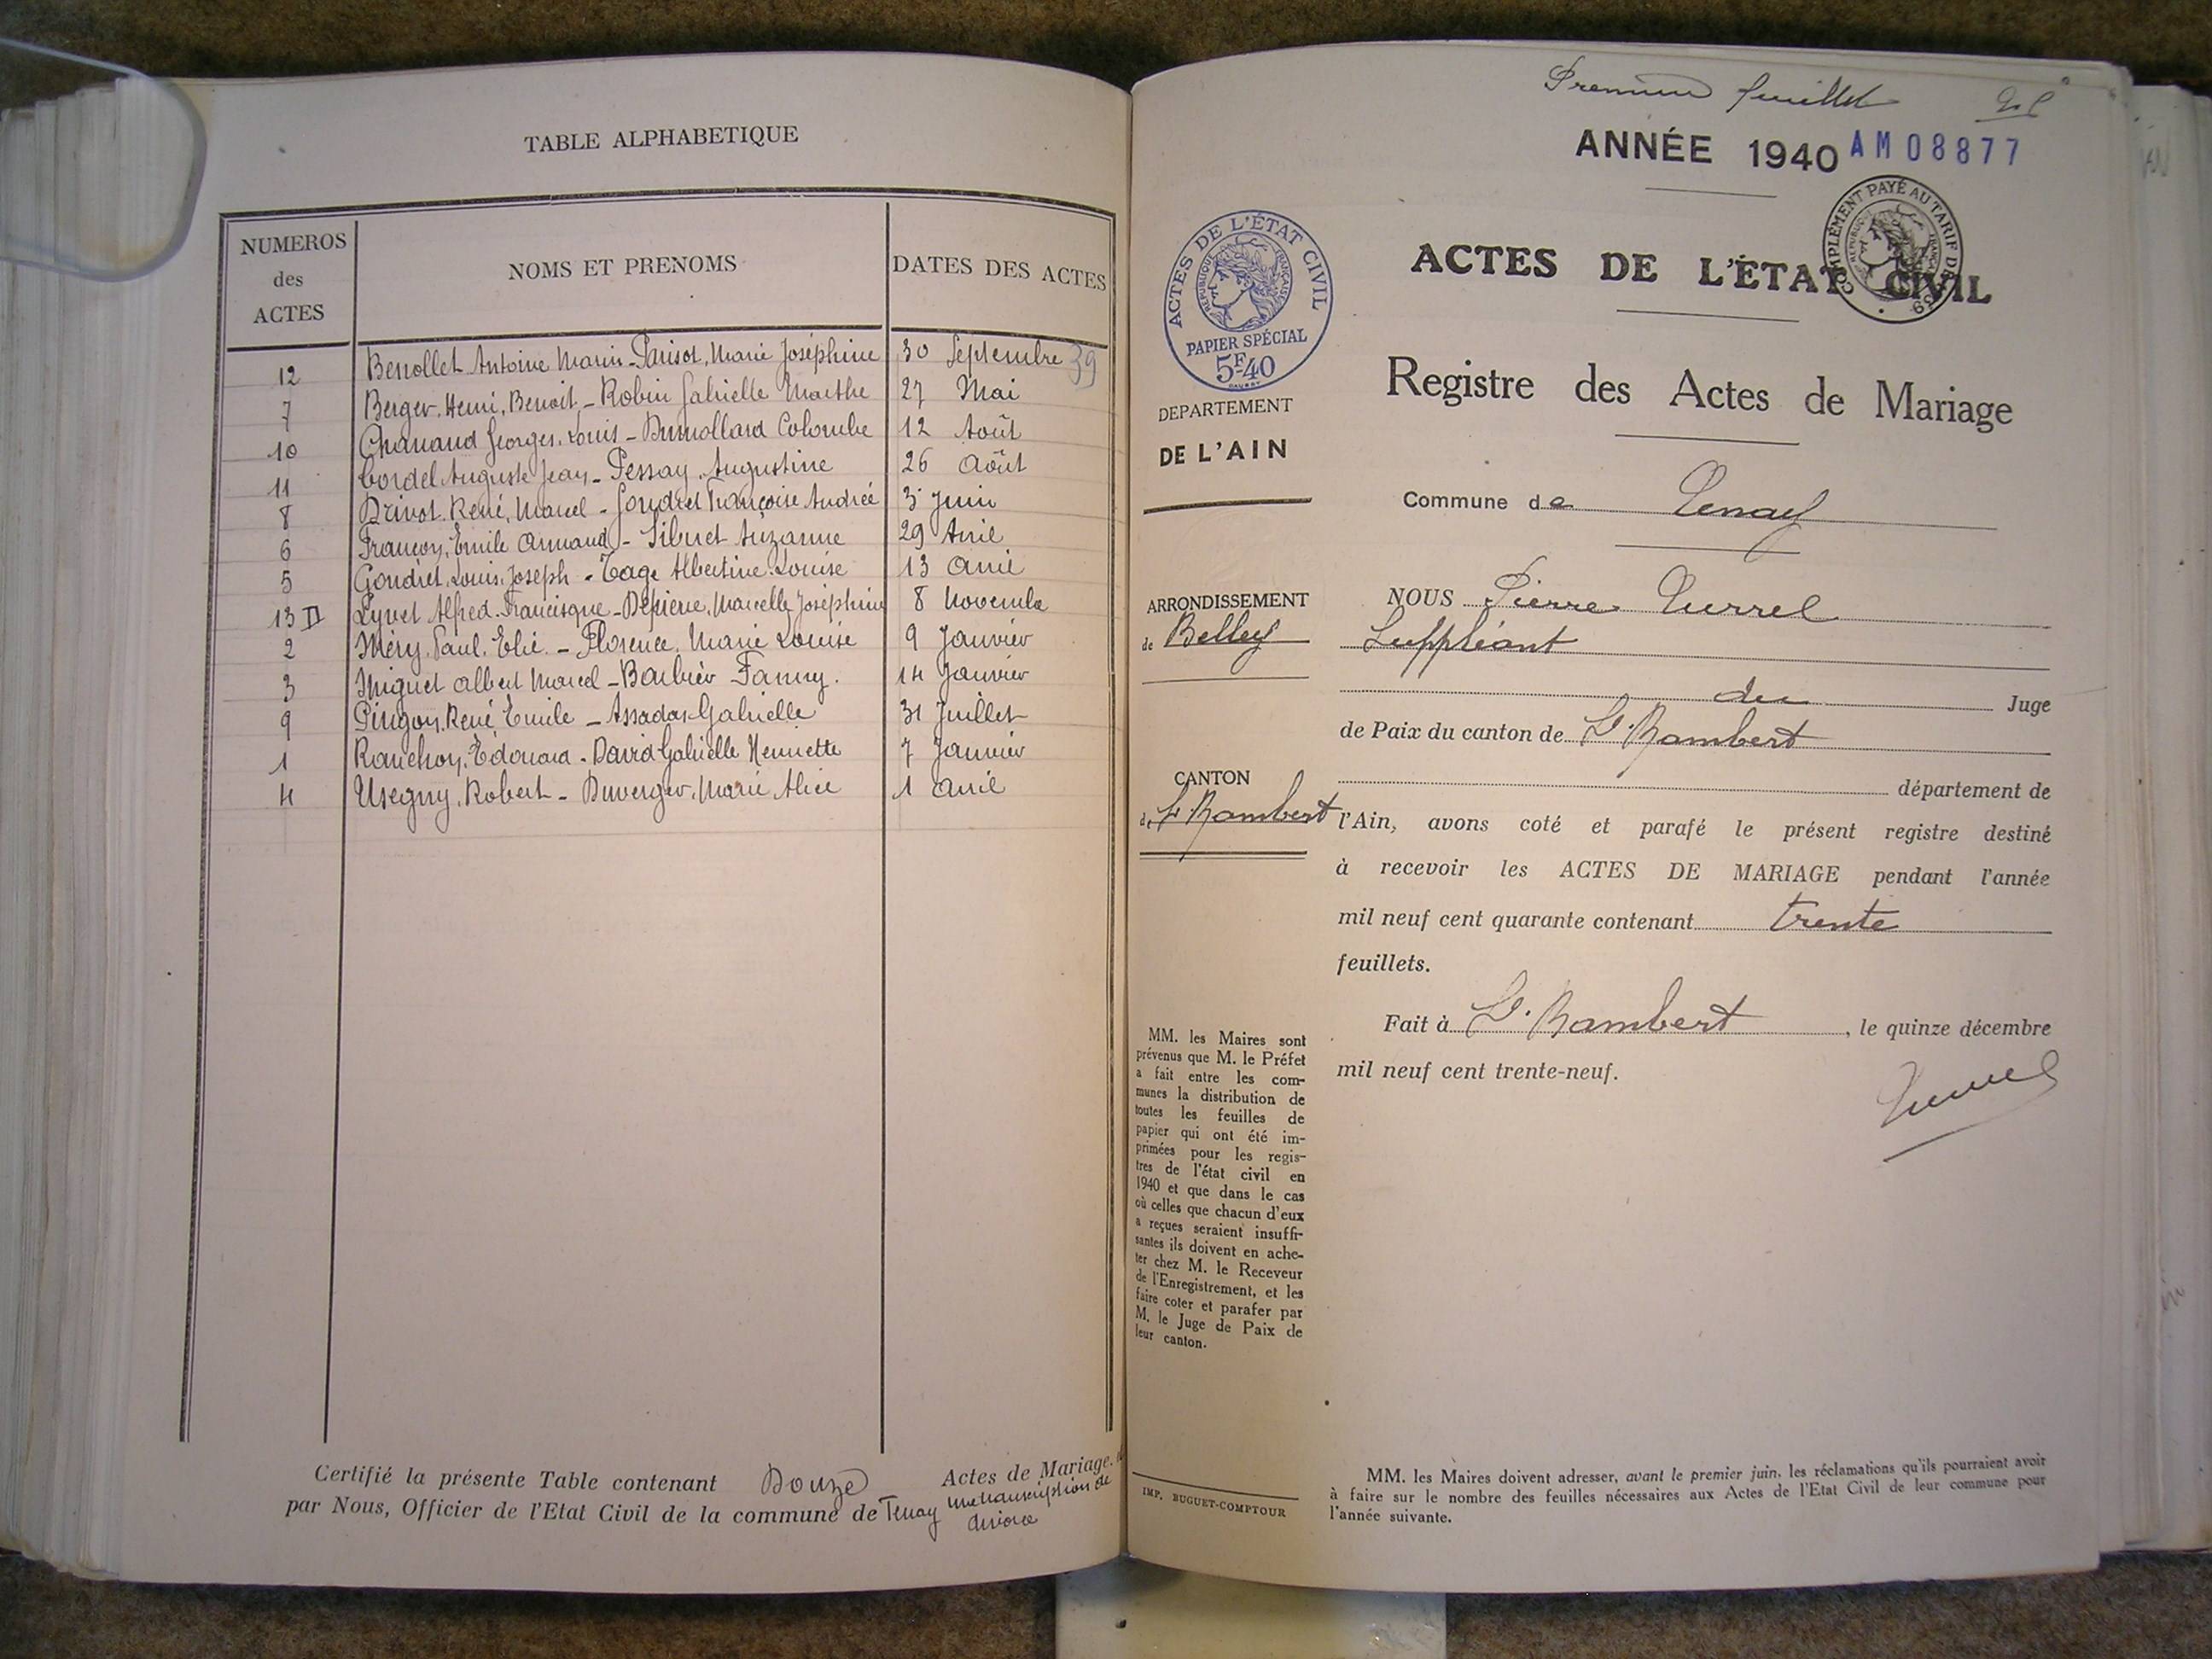 TABLE ALPHABETIQUE
NUMEROS des ACTES
NOMS ET PRENOMS
DATES DES ACTES
12 Benollet Antoine Marin - Parisot, Marie Joséphine 30 Septembre 39
7 Berger, Henri, Benoit - Robin Gabrielle Marthe 27 Mai
10 Chanaud Georges, Louis - Dumollard Colombe 12 Août
11 Cordel Auguste Jean - Pessay, Augustine 26 Août
8 Drivot, René, Marcel - Goudret Françoise Andrée 3 Juin
6 Françon, Emile Armand - Sibuet Suzanne 29 Avril
5 Goudret, Louis, Joseph - Tage Albertine Louise 13 Avril
13 D Lyvet Alfred Francisque - Depierre, Marcelle Joséphine 8 Novembre
2 Méry, Paul, Elie - Florence, Marie Louise 9 Janvier
3 Miguet Albert Marcel - Barbier Fanny. 14 Janvier
9 Pingon, René Emile - Assada Gabrielle 31 Juillet
1 Ranchon, Edouard - David Gabrielle Henriette 7 Janvier
4 Usegny, Robert - Duverger, Marie Alice 1 Avril
Certifié la présente Table contenant Douze Actes de Mariage.
par Nous, Officier de l'Etat Civil de la commune de Tenay une transcription de divorce
Premier feuillet
ANNÉE 1940 AM08877
ACTES DE L'ÉTAT CIVIL
RÉPUBLIQUE FRANÇAISE
PAPIER SPÉCIAL
5F40
COMPLÉMENT PAYÉ AU TARIF DE 1939
ACTES DE L'ÉTAT CIVIL
Registre des Actes de Mariage
DEPARTEMENT
DE L'AIN
Commune de Tenay
ARRONDISSEMENT
de Belley
CANTON
de St Rambert
NOUS Pierre Turrel
Suppléant
du Juge
de Paix du canton de St. Rambert
département de
l'Ain, avons coté et parafé le présent registre destiné
à recevoir les ACTES DE MARIAGE pendant l'année
mil neuf cent quarante contenant trente
feuillets.
Fait à St. Rambert, le quinze décembre
mil neuf cent trente-neuf.
Turrel
MM. les Maires sont
prévenus que M. le Préfet
a fait entre les com-
munes la distribution de
toutes les feuilles de
papier qui ont été im-
primées pour les regis-
tres de l'état civil en
1940 et que dans le cas
où celles que chacun d'eux
a reçues seraient insuffi-
santes ils doivent en ache-
ter chez M. le Receveur
de l'Enregistrement, et les
faire coter et parafer par
M. le Juge de Paix de
leur canton.
IMP. BUGUET-COMPTOUR
MM. les Maires doivent adresser, avant le premier juin, les réclamations qu'ils pourraient avoir
à faire sur le nombre des feuilles nécessaires aux Actes de l'Etat Civil de leur commune pour
l'année suivante.